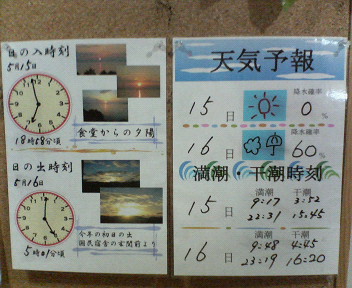 日の入時刻
5月15日
18時58分頃
食堂からの夕陽
日の出時刻
5月16日
5時01分頃
今年の初日の出
国民宿舎の玄関前より
天気予報
降水確率
15日 0%
降水確率
16日 60%
満潮・干潮時刻
満潮 干潮
15日 9:17 3:52
22:31 15:45
満潮 干潮
16日 9:48 4:45
23:19 16:20